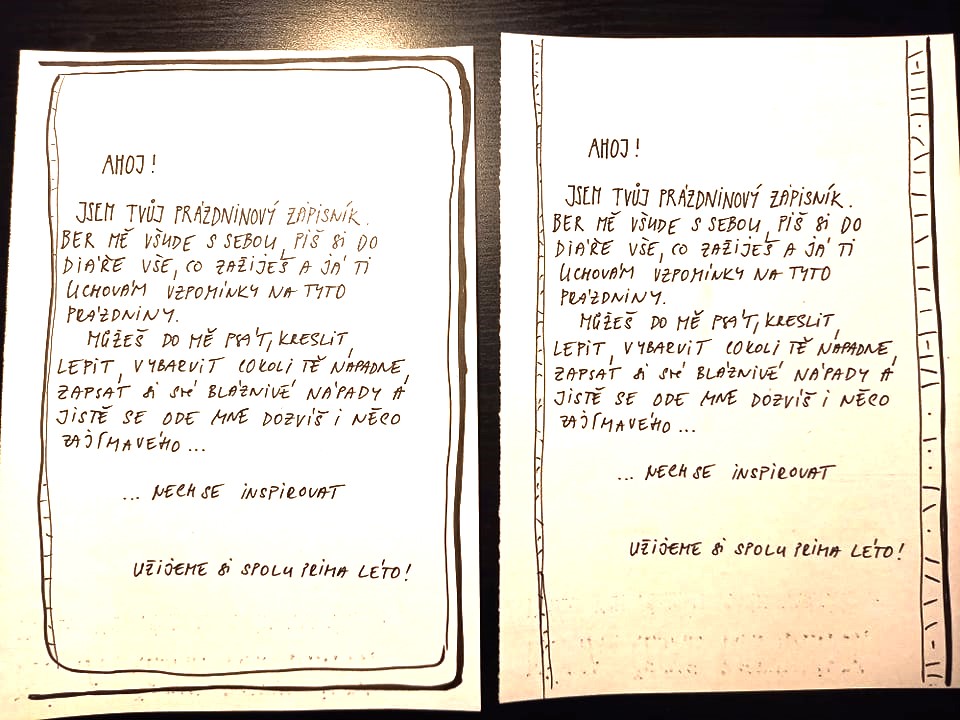 AHOJ!
JSEM TVŮJ PRÁZDNINOVÝ ZÁPISNÍK.
BER MĚ VŠUDE S SEBOU, PIŠ SI DO
DIÁŘE VŠE, CO ZAŽIJEŠ A JÁ TI
UCHOVÁM VZPOMÍNKY NA TYTO
PRÁZDNINY.
MŮŽEŠ DO MĚ PSÁT, KRESLIT,
LEPIT, VYBARVIT COKOLI TĚ NAPADNE,
ZAPSAT SI SVÉ BLÁZNIVÉ NÁPADY A
JISTĚ SE ODE MNE DOZVÍŠ I NĚCO
ZAJÍMAVÉHO...
... NECH SE INSPIROVAT
UŽIJEME SI SPOLU PRIMA LÉTO!
AHOJ!
JSEM TVŮJ PRÁZDNINOVÝ ZÁPISNÍK.
BER MĚ VŠUDE S SEBOU, PIŠ SI DO
DIÁŘE VŠE, CO ZAŽIJEŠ A JÁ TI
UCHOVÁM VZPOMÍNKY NA TYTO
PRÁZDNINY.
MŮŽEŠ DO MĚ PSÁT, KRESLIT,
LEPIT, VYBARVIT COKOLI TĚ NAPADNE,
ZAPSAT SI SVÉ BLÁZNIVÉ NÁPADY A
JISTĚ SE ODE MNE DOZVÍŠ I NĚCO
ZAJÍMAVÉHO...
... NECH SE INSPIROVAT
UŽIJEME SI SPOLU PRIMA LÉTO!